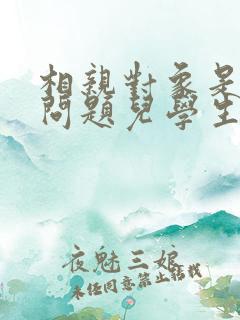 相親對象是
問題兒學生
夜魅三娘
未經同意禁止轉載